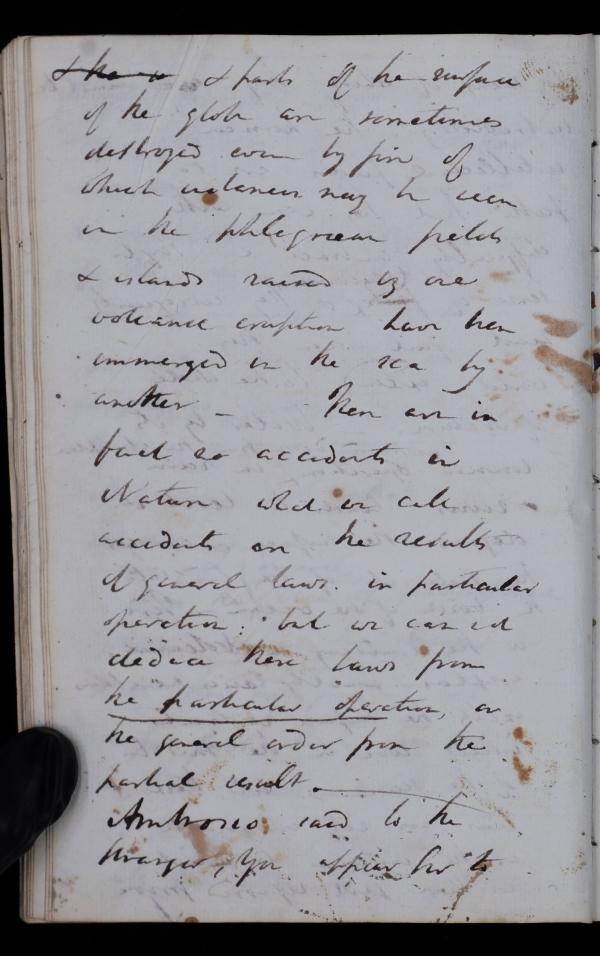 & the & parts of the surface
of the globe are sometimes
destroyed even by fire of
which instances may be seen
in the phlegrean fields
& islands raised by one
volcanic eruption have been
immerged in the sea by
another – There are in
fact no accidents in
Nature what we call
accidents are the results
of general laws. in particular
operation. but we can not
deduce these laws from
the particular operation, or
the general order from the
partial result.
Ambrosio said to the
Stranger, You appear Sir to